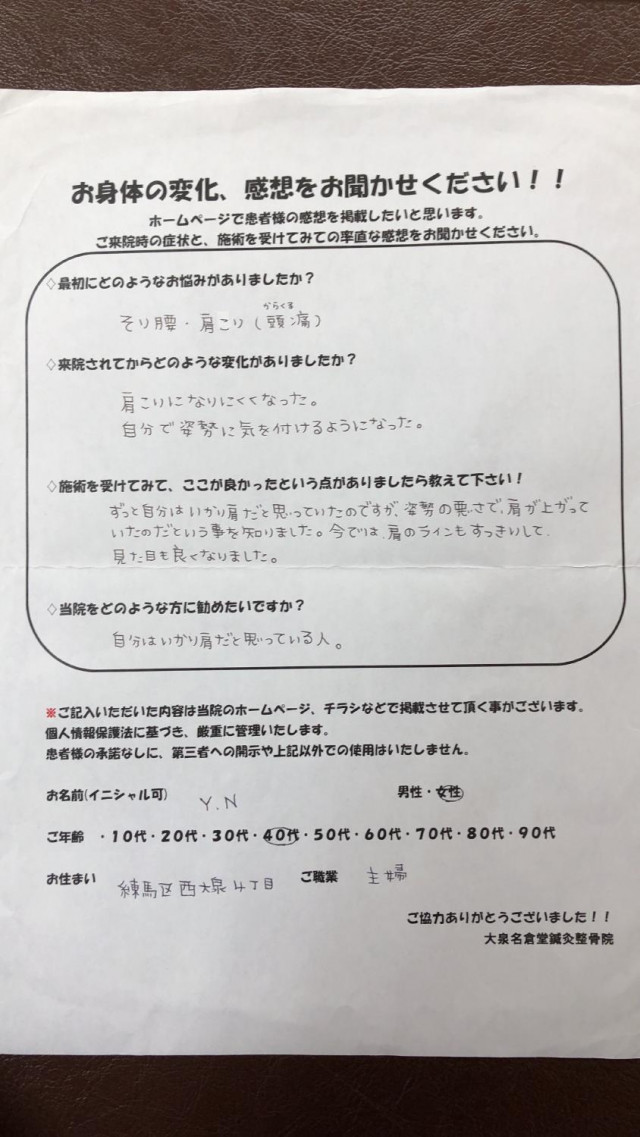 お身体の変化、感想をお聞かせください！！
ホームページで患者様の感想を掲載したいと思います。
ご来院時の症状と、施術を受けてみての率直な感想をお聞かせください。
◇最初にどのようなお悩みがありましたか？
からくる
そり腰・肩こり（頭痛）
◇来院されてからどのような変化がありましたか？
肩こりになりにくくなった。
自分で姿勢に気を付けるようになった。
◇施術を受けてみて、ここが良かったという点がありましたら教えて下さい！
ずっと自分はいかり肩だと思っていたのですが、姿勢の悪さで、肩が上がって
いたのだという事を知りました。今では、肩のラインもすっきりして、
見た目も良くなりました。
◇当院をどのような方に勧めたいですか？
自分はいかり肩だと思っている人。
※ご記入いただいた内容は当院のホームページ、チラシなどで掲載させて頂く事がございます。
個人情報保護法に基づき、厳重に管理いたします。
患者様の承諾なしに、第三者への開示や上記以外での使用はいたしません。
お名前(イニシャル可) Y.N 男性・女性
ご年齢 ・10代・20代・30代・40代・50代・60代・70代・80代・90代
お住まい 練馬区西大泉4丁目 ご職業 主婦
ご協力ありがとうございました！！
大泉名倉堂鍼灸整骨院